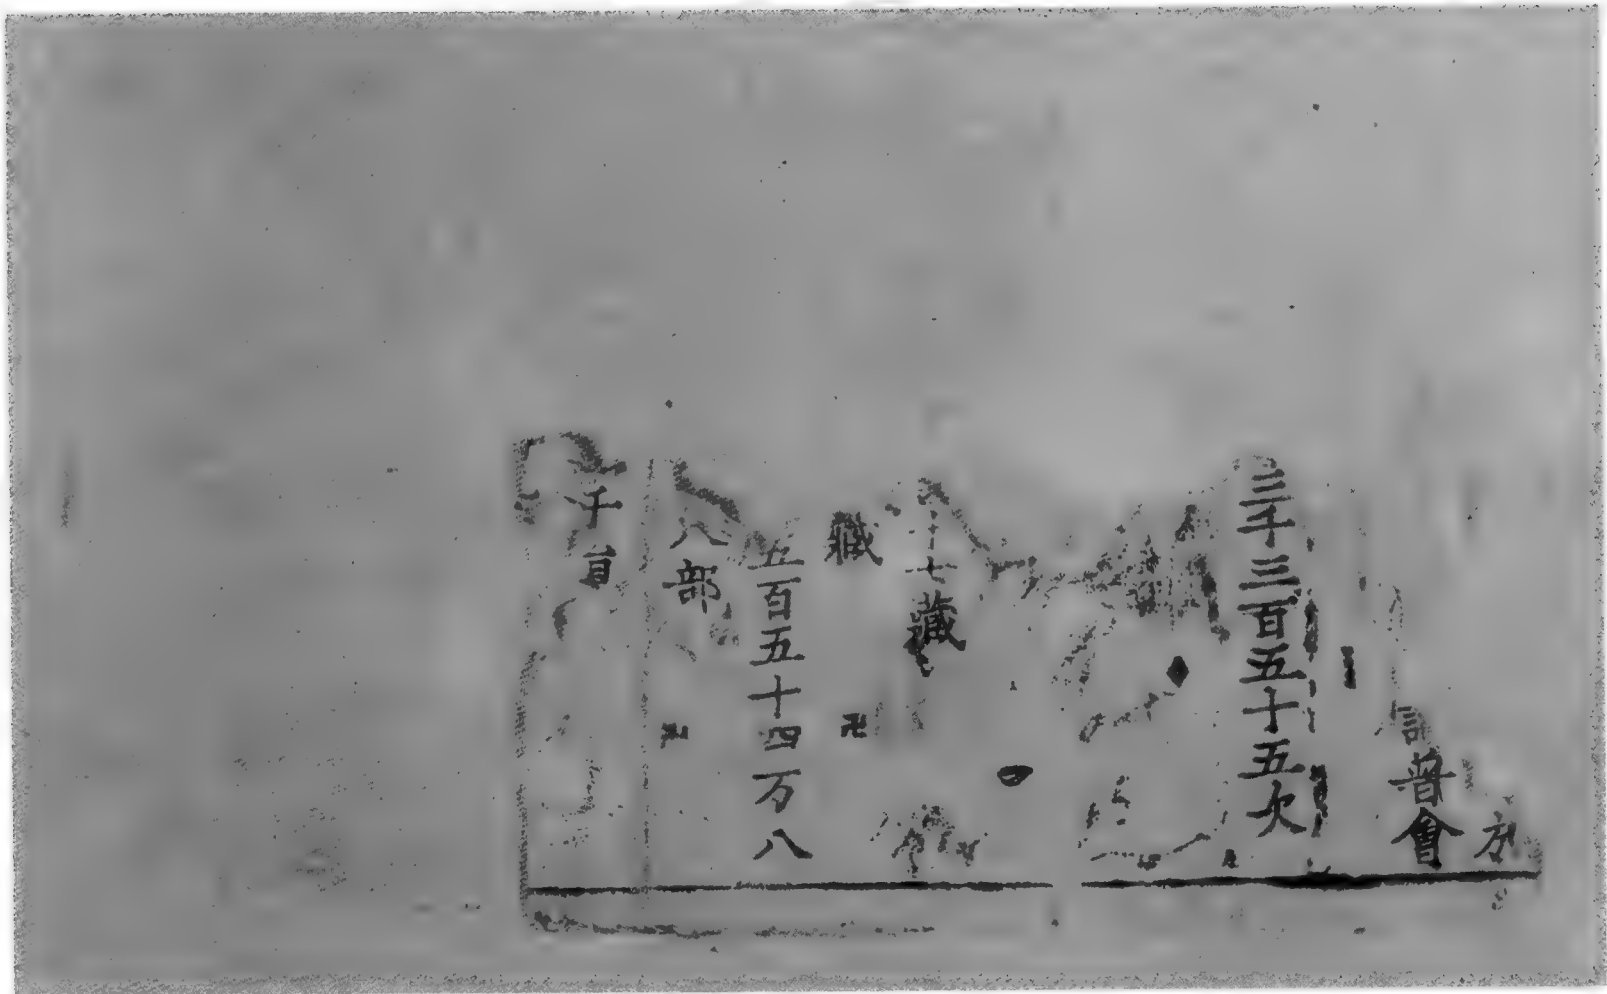 方
普會
三千三百五十五欠
十七藏
藏 卍
五百五十四万八
八部 卍
千百